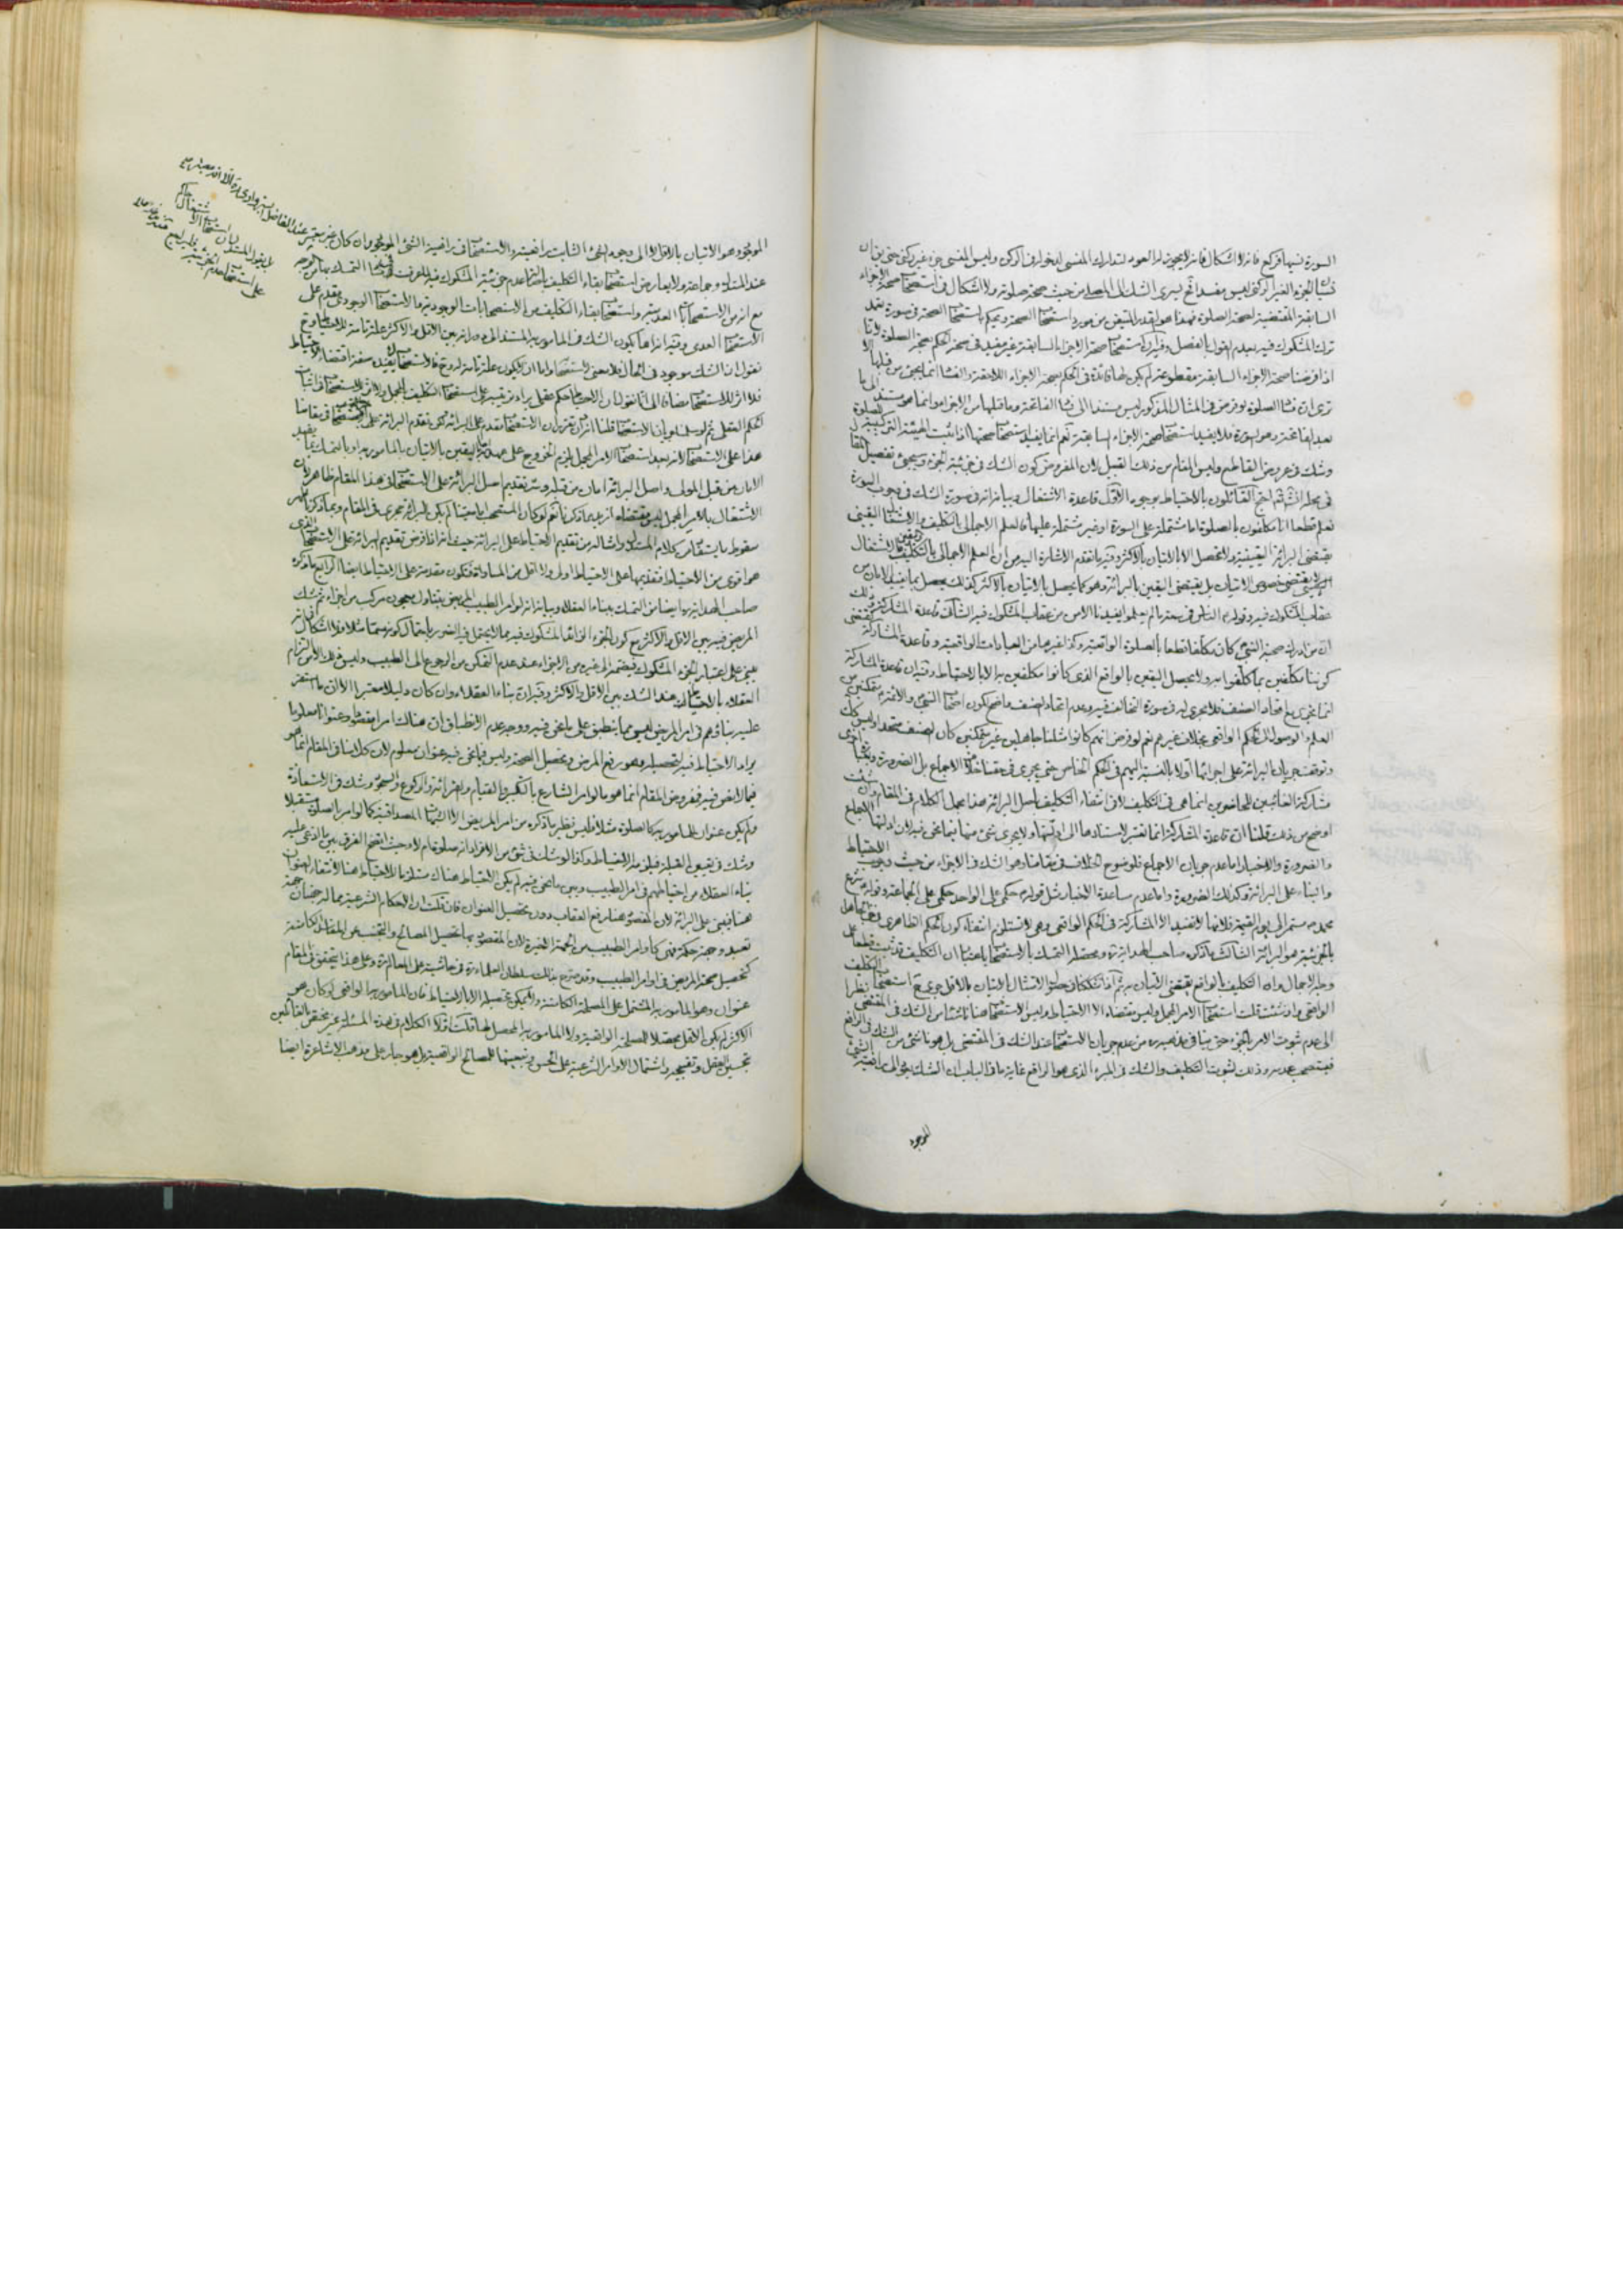 السورة نسيها فركع فانه لا اشكال فانه لا يجوز له العود لتدارك المنسى لدخوله فى الركن وليس المنسى جزء غير ركنى حتى يق ان
نسيان الجزء الغير الركنى ليس مفسدا فح يسرى الشك الى المصلى من حيث صحة صلوته ولا اشكال فى استصحاب صحة الاجزاء
السابقة المقتضية لصحة الصلوة فهذا هو القدر المتيقن من مورد استصحاب الصحة ويحكم باستصحاب الصحة فى صورة تعمد
ترك المشكوك فيه بعدم القول بالفصل وفيه ان استصحاب صحة الاجزاء السابقة غير مفيد فى صحة الحكم بصحة الصلوة لانا
اذا فرضنا صحة الاجزاء السابقة مقطوعة لم يكن لها فائدة فى الحكم بصحة الاجزاء اللاحقة والفساد انما يجىء من قبلها الا
ترى ان فساد الصلوة لو فرض فى المثال المذكور ليس مستندا الى فساد الفاتحة وما قبلها من الاجزاء وانما هو مستند الى ما
بعد الفاتحة وهو السورة فلا يفيد استصحاب صحة الاجزاء السابقة نعم انما يفيد استصحاب صحتها اذا ثبت الهيئة التركيبية للصلوة
وشك فى عروض القاطع وليس المقام من ذلك القبيل لان المفروض كون الشك فى جزئية الجزء وسيجىء تفصيل المقام
فى محله انش ثم احتج القائلون بالاحتياط بوجوه الاول قاعدة الاشتغال وبيانه انه فى صورة الشك فى وجوب السورة
نعلم قطعا انا مكلفون بالصلوة اما مشتملة على السورة او غير مشتملة عليها فالعلم الاجمالى بالتكليف والاشتغال اليقينى
يقتضى البرائة اليقينية ولا تحصل الا بالاتيان بالاكثر وفيه ما تقدم الاشارة اليه من ان العلم الاجمالى بالتكليف والاشتغال
اليقينى لا يقتضى خصوص الاتيان بل يقتضى اليقين بالبرائة وهو كما يحصل بالاتيان بالاكثر كذلك يحصل بما يفيد الامان من
عقاب المشكوك فيه وقوله الناس فى سعة ما لم يعلموا يفيدنا الامن من عقاب المشكوك فيه الثانى قاعدة المشاركة وذلك
ان من ادرك صحبة النبى كان مكلفا قطعا بالصلوة الواقعية وكذا غيرها من العبادات الواقعية وقاعدة المشاركة تقتضى
كوننا مكلفين بما كلفوا به ولا يحصل اليقين بالواقع الذى كانوا مكلفين به الا بالاحتياط وفيه ان قاعدة المشاركة
انما تجرى مع اتحاد الصنف فلا تجرى فى صورة التخالف فيه وعدم اتحاد الصنف واضح لكون اصحاب النبى والائمة متمكنين من
العلم والوصول الى الحكم الواقعى بخلاف غيرهم نعم لو فرض انهم كانوا مثلنا جاهلين غير متمكنين كان الصنف متحدا وليس كك
وتوقفت جريان البرائة على اجرائها اولا بالنسبة اليهم فى الحكم الخاص حتى يجرى فى حقنا خلاف الاجماع بل الضرورة وبعبارة اخرى
مشاركة الغائبين للحاضرين انما هى فى التكليف لا فى انتفاء التكليف باصل البرائة هذا مجمل الكلام فى المقام وان شئت
اوضح من ذلك قلنا ان قاعدة المشاركة انما تعتبر لاستنادها الى ادلتها ولا يجرى شىء منها فيما نحن فيه لان ادلتها الاجماع
والضرورة والاخبار اما عدم جريان الاجماع فلوضوح الخلاف فى مقامنا وهو الشك فى الاجزاء من حيث وجوب الاحتياط
والبناء على البرائة وكذلك الضرورة واما عدم مساعدة الاخبار مثل قوله حكمى على الواحد حكمى على الجماعة وقوله شرع
محمد ص مستمر الى يوم القيمة فلانها لا تفيد الا المشاركة فى الحكم الواقعى وهى لا تستلزم انتفاء كون الحكم الظاهرى فى حق الجاهل
بالجزئية هو البرائة الثالث ما ذكره صاحب الهداية ره ومحصله التمسك بالاستصحاب باعتبار ان التكليف قد ثبت قطعا على
وجه الاجمال وان التكليف بالواقع يقتضى الاتيان به فاذا شككنا فى حصول الامتثال بالاتيان بالاقل جرى استصحاب التكليف
الواقعى وان شئت قلت استصحاب الامر المجمل وليس مقتضاه الا الاحتياط وليس الاستصحاب هنا ناشئا من الشك فى المقتضى نظرا
الى عدم ثبوت الامر بالجزء حتى ينافى مذهبه من عدم جريان الاستصحاب عند الشك فى المقتضى بل هو ناشىء من الشك فى الرافع
فيستصحب عدمه وذلك لثبوت التكليف والشك فى المبرء الذى هو الرافع غاية ما فى الباب ان الشك يؤل الى رافعية الشىء
الموجود
الموجود هو الاتيان بالاقل لا الى وجود الشىء الثابت رافعيته والاستصحاب فى رافعية الشىء الموجود وان كان غير معتبر عند الفاضل
عند المستدل وجماعة ولا يعارض استصحاب بقاء التكليف باصالة عدم جزئية المشكوك فيه
مع انه من الاستصحابات العدمية واستصحاب بقاء التكليف من الاستصحابات الوجودية والاستصحاب الوجودى مقدم على
الاستصحاب العدمى وفيه انه اما يكون الشك فى المأمور به المستند الى دورانه بين الاقل والاكثر علة تامة للاحتياط وح
نقول ان الشك موجود فى الحال فلا معنى لاستصحابه واما ان لا يكون علة تامة له وح فالاستصحاب لا يفيده صفة اقتضاء الاحتياط
فلا اثر للاستصحاب مضافا الى انا نقول ان الاحتياط حكم عقلى يراد ترتيبه على استصحاب التكليف المجمل ولا اثر للاستصحاب فى اثبات
الحكم العقلى ثم لو سلم جريان الاستصحاب قلنا ان تقرر ان الاستصحاب مقدم على البرائة لكن تقدم البرائة على الاستصحاب فى مقامنا
هذا على الاستصحاب لانه بعد استصحاب الامر المجمل يلزم الخروج على عهدته واليقين بالاتيان بالمأمور به او بالتمسك بما يفيد
الامان من قبل المولى واصل البرائة امان من قبله ومع تقديم اصل البرائة على الاستصحاب فى هذا المقام ظاهر لان
الاشتغال بالامر المجمل ليس مقتضاه ازيد مما ذكرنا نعم لو كان المستصحب امرا معينا لم يكن البرائة تجرى فى المقام وبما ذكرنا ظهر
سقوط ما يستفاد من كلام المستدل وامثاله من تقديم الاحتياط على البرائة حيث انه اذا فرض تقديم البرائة على الاستصحاب الذى
هو اقوى من الاحتياط فتقديمها على الاحتياط اولى ولا اقل من المساواة فتكون مقدمة على الاحتياط ايضا الرابع ما ذكره
صاحب الهداية ره ايضا من التمسك ببناء العقلاء وبيانه انه لو امر الطبيب المريض بتناول معجون مركب من اجزاء ثم شك
المريض فيه بين الاقل والاكثر مع كون الجزء الزائد المشكوك فيه مما لا يحتمل فيه الضرر باحتمال كونه سما مثلا فلا اشكال فى انه
يبنى على اعتبار الجزء المشكوك فيضمه الى غيره من الاجزاء عند عدم التمكن من الرجوع الى الطبيب وليس ذلك الا من التزام
العقلاء بالاحتياط عند الشك بين الاقل والاكثر وفيه ان بناء العقلاء وان كان دليلا معتبرا الا ان ما استقر
عليه بناؤهم فى امر المريض ليس مما ينطبق على ما نحن فيه ووجه عدم الانطباق ان هناك امرا مقصودا وعنوانا معلوما
يراد الاحتياط فيه لتحصيله وهو رفع المرض وتحصيل الصحة وليس فيما نحن فيه عنوان معلوم لان كلامنا فى المقام انما هو
فيما لا نص فيه ففرض المقام انما هو ما لو امر الشارع بالتكبير والقيام والقرائة والركوع والسجود وشك فى الاستعاذة
ولم يكن عنوان المأمور به كالصلوة مثلا
وشك فى تعيين القبلة
بناء العقلاء من احتياطهم فى امر الطبيب وبين ما نحن فيه لم يكن الاحتياط هناك مستلزما للاحتياط هنا لانتفاء العنوان
هنا فيبنى على البرائة لان المقصود هنا رفع العقاب دون تحصيل العنوان فان قلت ان الاحكام الشرعية مما له جهتان جهة
تعبد وجهة حكمة فهى كاوامر الطبيب من الجهة الاخيرة لان المقصود بها تحصيل المصالح والتجنب عن المفاسد الكامنة
كتحصيل صحة المريض فى اوامر الطبيب وقد صرح بذلك سلطان العلماء ره فى حاشيته على المعالم وعلى هذا يتحقق فى المقام
عنوان وهو المأمور به المشتمل على المصلحة الكامنة ولا يمكن تحصيله الا بالاحتياط فان المأمور به الواقعى لو كان هو
الاكثر لم يكن الاقل محصلا للمصلحة الواقعية ولا المأمور به المحصل لها قلت اولا الكلام فى هذه المسئلة غير مختص بالقائلين
بتحسين العقل وتقبيحه واشتمال الاوامر الشرعية على الحسن وتبعيتها للمصالح الواقعية بل هو جار على مذهب الاشاعرة ايضا